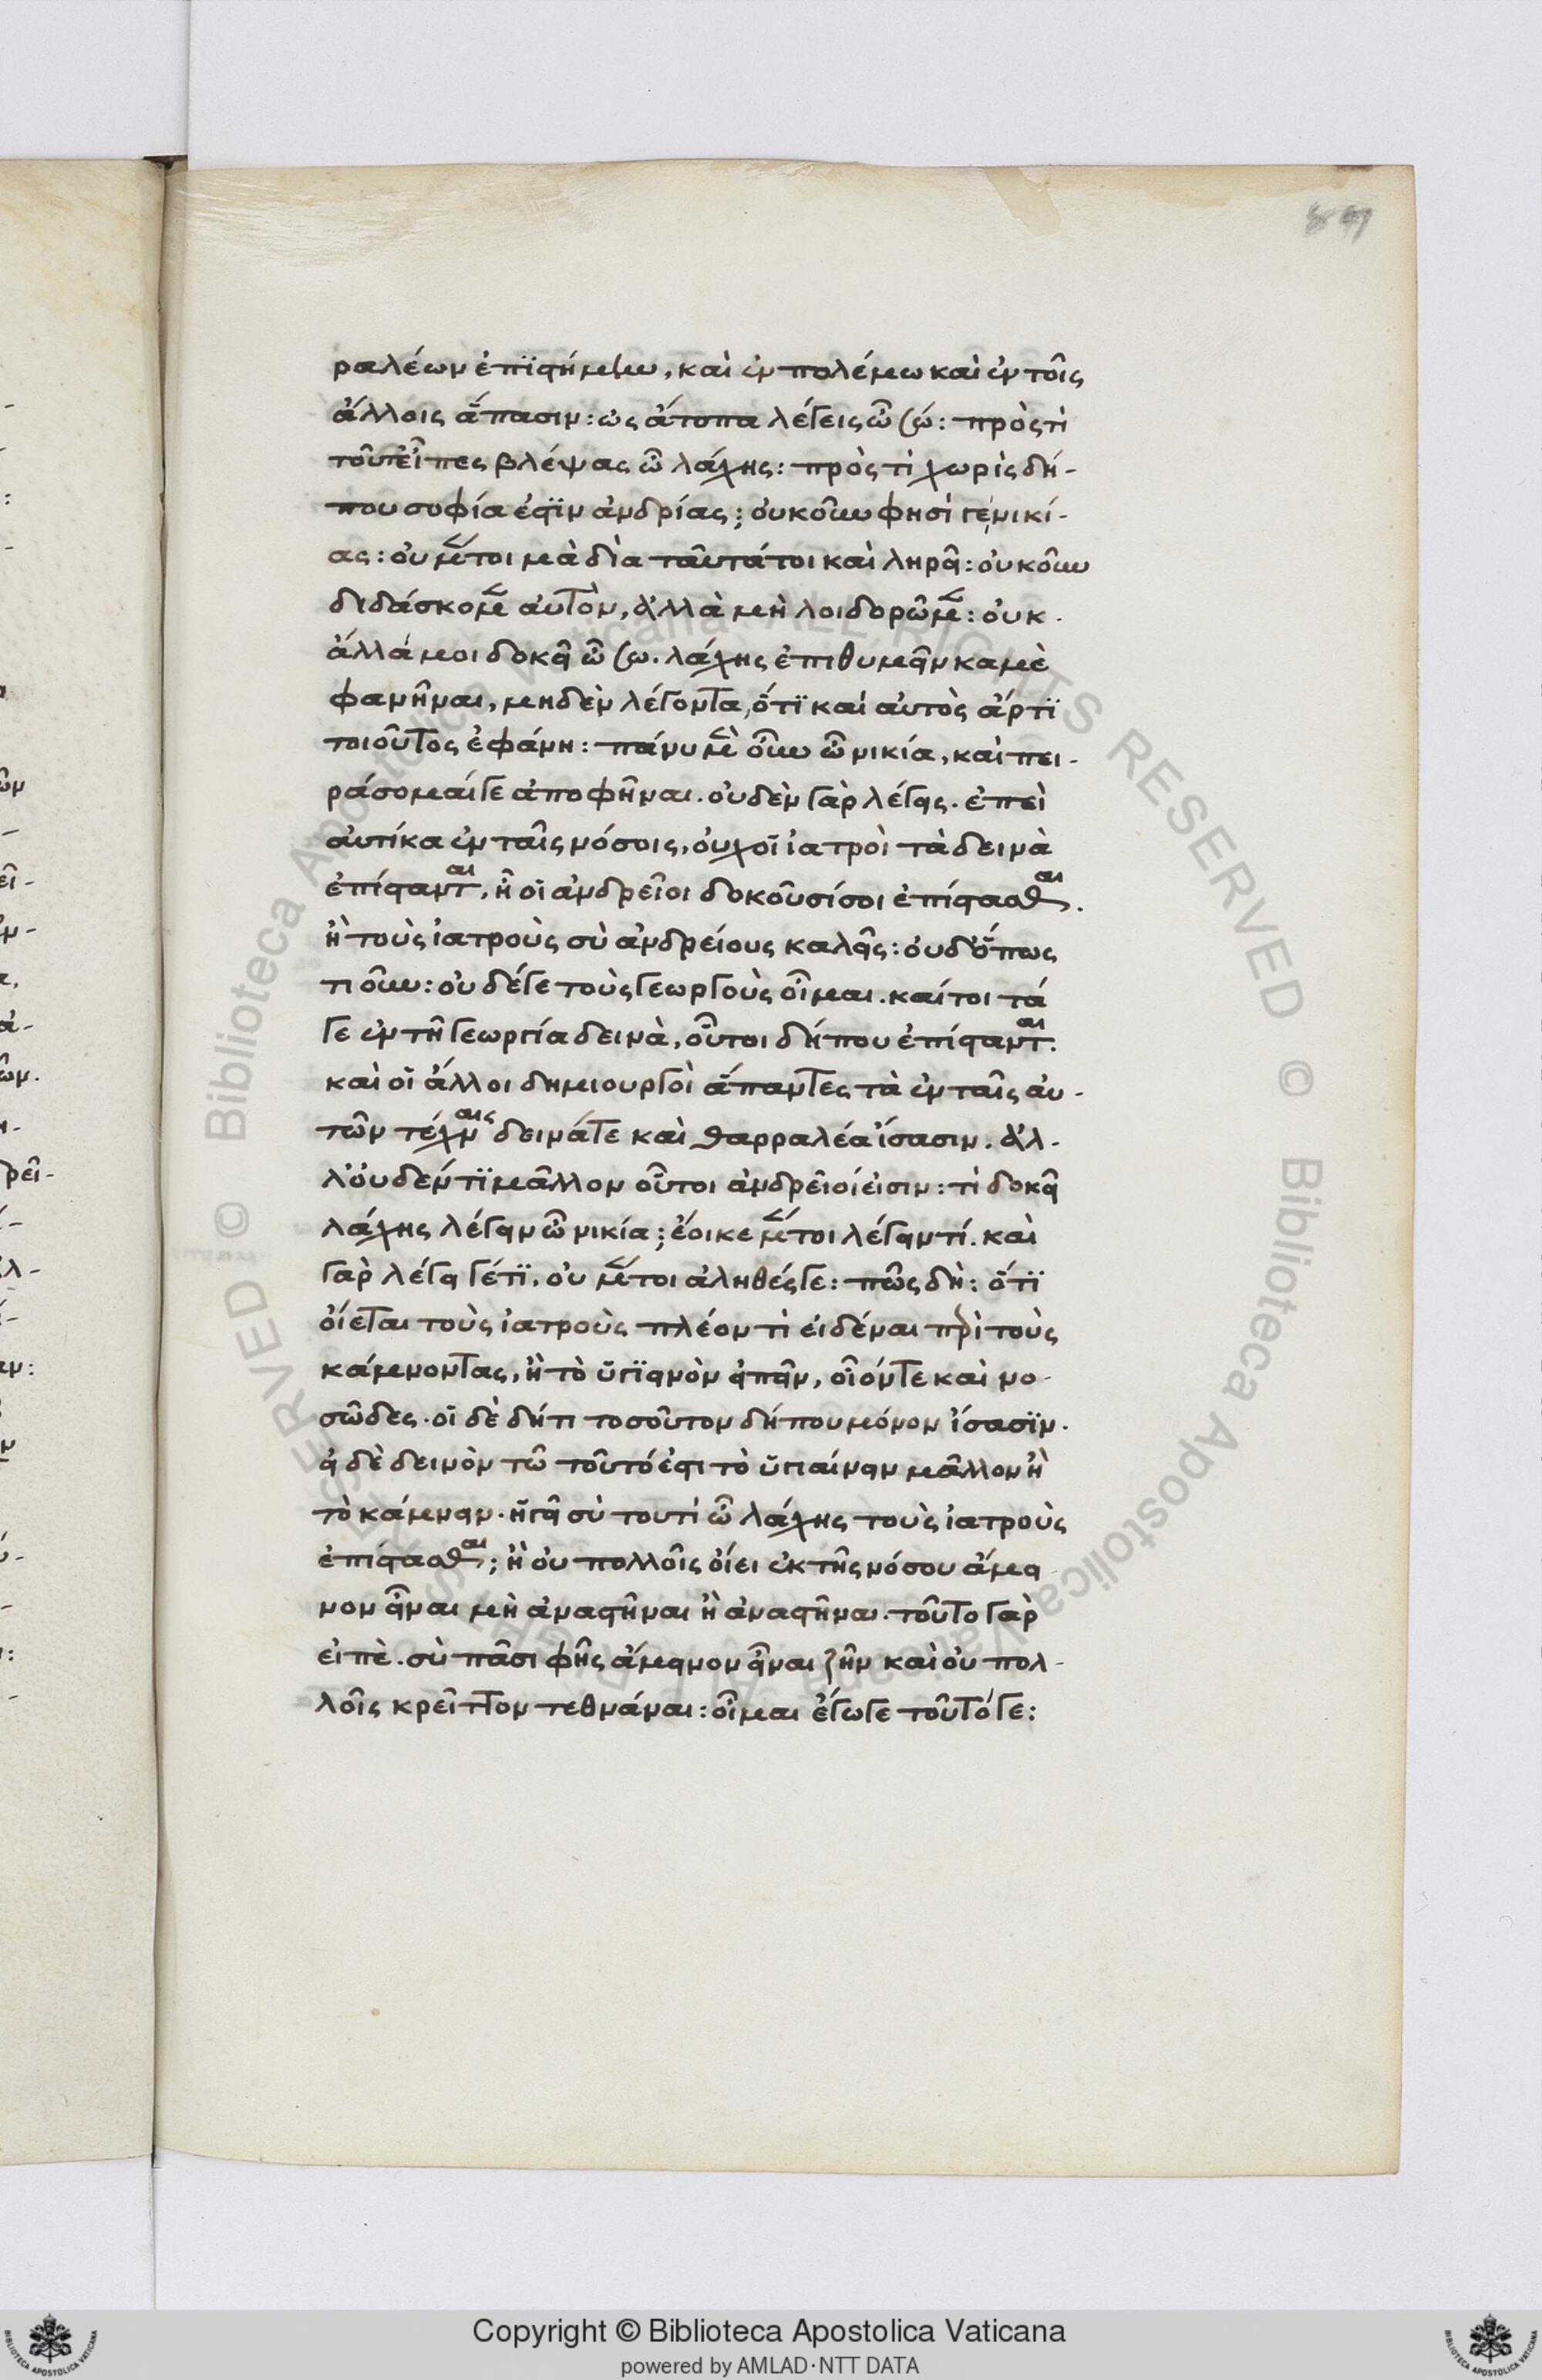 89
ραλέων ἐπϊστήμην, καὶ ἐν πολέμω καὶ ἐν τοῖς
ἄλλοις ἅπασιν: ὡς ἄτοπα λέγεις ὦ σώ: πρὸς τί
τοῦτ εἶπες βλέψας ὦ λάχης: πρὸς τί χωρὶς δή-
που σοφία ἐστϊν ἀνδρίας; οὐκοῦν φησί γε νικί-
ας: οὐ μέντοι μὰ δία ταῦτά τοι καὶ ληρεῖ: οὐκοῦν
διδάσκομεν αὐτὸν, ἀλλὰ μὴ λοιδορῶμεν: οὐκ.
ἀλλά μοι δοκεῖ ὦ σω. λάχης ἐπιθυμεῖν καμὲ
φανῆναι, μηδὲν λέγοντα, ὅτϊ καὶ αὐτὸς ἄρτϊ
τοιοῦτος ἐφάνη: πάνυ μὲν οὖν ὦ νικία, καὶ πει-
ράσομαί γε ἀποφῆναι. οὐδὲν γὰρ λέγεις. ἐπεὶ
αὐτίκα ἐν ταῖς νόσοις, οὐχ οἱ ἰατροὶ τὰ δεινὰ
ἐπίστανται, ἢ οἱ ἀνδρεῖοι δοκοῦσί σοι ἐπίστασθαι.
ἢ τοὺς ἰατροὺς σὺ ἀνδρείους καλεῖς: οὐδ ὅπως
τι οὖν: οὐδέ γε τοὺς γεωργοὺς οἶμαι. καίτοι τά
γε ἐν τῆ γεωργία δεινὰ, οὗτοι δήπου ἐπίστανται.
καὶ οἱ ἄλλοι δημιουργοὶ ἅπαντες τὰ ἐν ταῖς αὐ-
τῶν τέχναις δεινά τε καὶ θαρραλέα ἴσασιν. ἀλ-
λ οὐδέν τϊ μᾶλλον οὗτοι ἀνδρεῖοί εἰσιν: τί δοκεῖ
λάχης λέγειν ὦ νικία; ἔοικε μέντοι λέγειν τί. καὶ
γὰρ λέγει γέ τϊ, οὐ μέντοι ἀληθές γε: πῶς δή: ὅτϊ
οἴεται τοὺς ἰατροὺς πλέον τὶ εἰδέναι περὶ τοὺς
κάμνοντας, ἢ τὸ ὑγϊεινὸν εἰπεῖν, οἷόν τε καὶ νο-
σῶδες. οἱ δὲ δήτι τοσοῦτον δήπου μόνον ἴσασϊν.
εἰ δὲ δεινὸν τῶ τοῦτό ἐστι τὸ ὑγιαίνειν μᾶλλον ἢ
τὸ κάμνειν. ἡγεῖ σὺ τουτὶ ὦ λάχης τοὺς ἰατροὺς
ἐπίστασθαι; ἢ οὐ πολλοῖς οἴει ἐκ τῆς νόσου ἄμει
νον εἶναι μὴ ἀναστῆναι ἢ ἀναστῆναι. τοῦτο γὰρ
εἰπὲ. σὺ πᾶσι φῆς ἄμεινον εἶναι ζῆν καὶ οὐ πολ-
λοῖς κρεῖττον τεθνάναι: οἶμαι ἔγωγε τοῦτό γε:
Copyright © Biblioteca Apostolica Vaticana
powered by AMLAD·NTT DATA